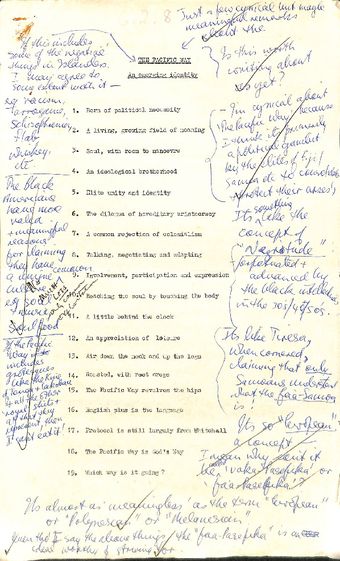 Just a few cynical but maybe
meaningful remarks
about the
THE PACIFIC WAY
An emerging identity
1. Born of political necessity
2. A living, growing field of meaning
3. Soul, with room to manoeuvre
4. An ideological brotherhood
5. Elite unity and identity
6. The dilemma of hereditary aristocracy
7. A common rejection of colonialism
8. Talking, negotiating and adapting
9. Involvement, participation and expression
10. Reaching the soul by touching the body
11. A little behind the clock
12. An appreciation of leisure
13. Air down the neck and up the legs
14. Roasted, with root crops
15. The Pacific Way revolves the hips
16. English plus is the language
17. Protocol is still largely from Whitehall
18. The Pacific Way is God's Way
19. Which way is it going?
If this includes
some of the negative
things in Islanders.
I may agree to
some extent with it —
eg racism,
arrogance,
schizophrenia,
Flag
whiskey,
etc
The black
Americans
have more
valid
+ meaningful
reasons
for claiming
they have common
a genuine
culture
eg soul
music
Soul food
If the Pacific
Way is to
includes
grotesques
like the King
of Tonga
+ the other
royal shits
at that
then
I can't eat it!
Is this worth
writing about
as yet?
I'm cynical about
the Pacific Way because
I think it's primarily
a political gambit
by the elites of Fiji/
Samoa etc to consolidate
+ protect their areas,
It's something
like the
concept of
"Negritude"
perpetrated +
advanced by
the black intellectuals
in the 30s/40s/50s.
It's like Tiresa,
when cornered,
claiming that only
Samoans understand
what the faa-Samoa
is.
It's so "European"
a concept —
I mean why can't it
be 'vaka Pasefika' or
'faa-Pasefika'?
It's almost as 'meaningless' as the term "European"
or "Polynesian" or "Melanesian".
Given the I say the above things, the "faa-Pasefika" is an
ideal worthy of striving for.